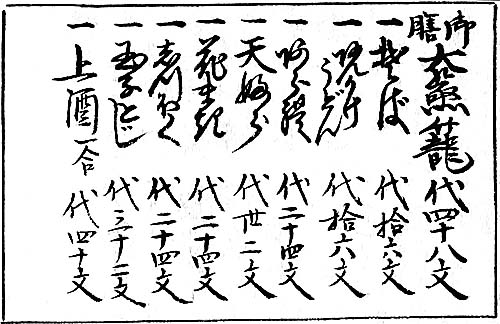 御膳大蒸籠 代四十八文
一 そば 代拾六文
一 あんかけうどん 代拾六文
一 あられ 代二十四文
一 天婦ら 代卅二文
一 花まき 代二十四文
一 しつぽく 代二十四文
一 玉子とじ 代三十二文
一 上酒一合 代四十文